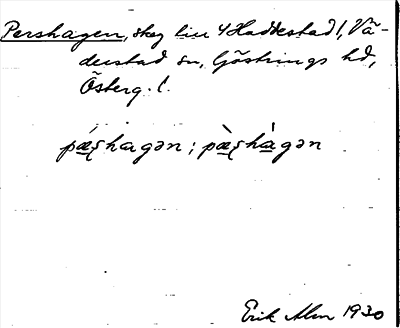 Pershagen, skog liu 4 Haddestad 1, Vä-
derstad sn, Göstrings hd,
Österg. l.
pǽʂhagən ; pæ̀ʂhàgən
Erik Alm 1930